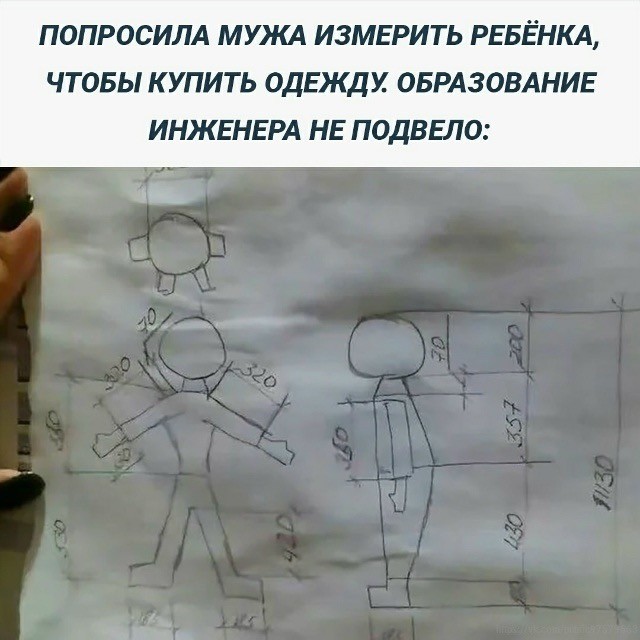 ПОПРОСИЛА МУЖА ИЗМЕРИТЬ РЕБЁНКА,
ЧТОБЫ КУПИТЬ ОДЕЖДУ. ОБРАЗОВАНИЕ
ИНЖЕНЕРА НЕ ПОДВЕЛО:
70
320
320
70
200
350
357
1130
530
420
430